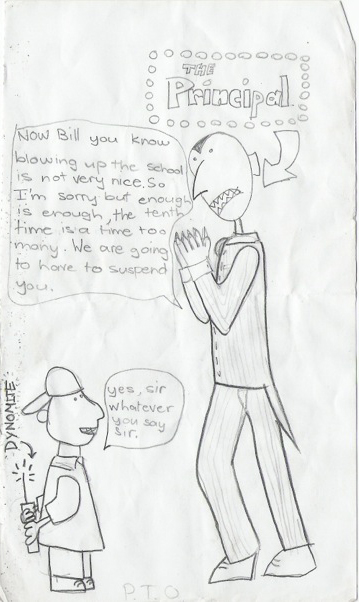 THE
Principal.
Now Bill you know
blowing up the school
is not very nice. So
I'm sorry but enough
is enough, the tenth
time is a time too
many. We are going
to have to suspend
you.
yes, sir
whatever
you say
sir.
DYNOMITE
P.T.O